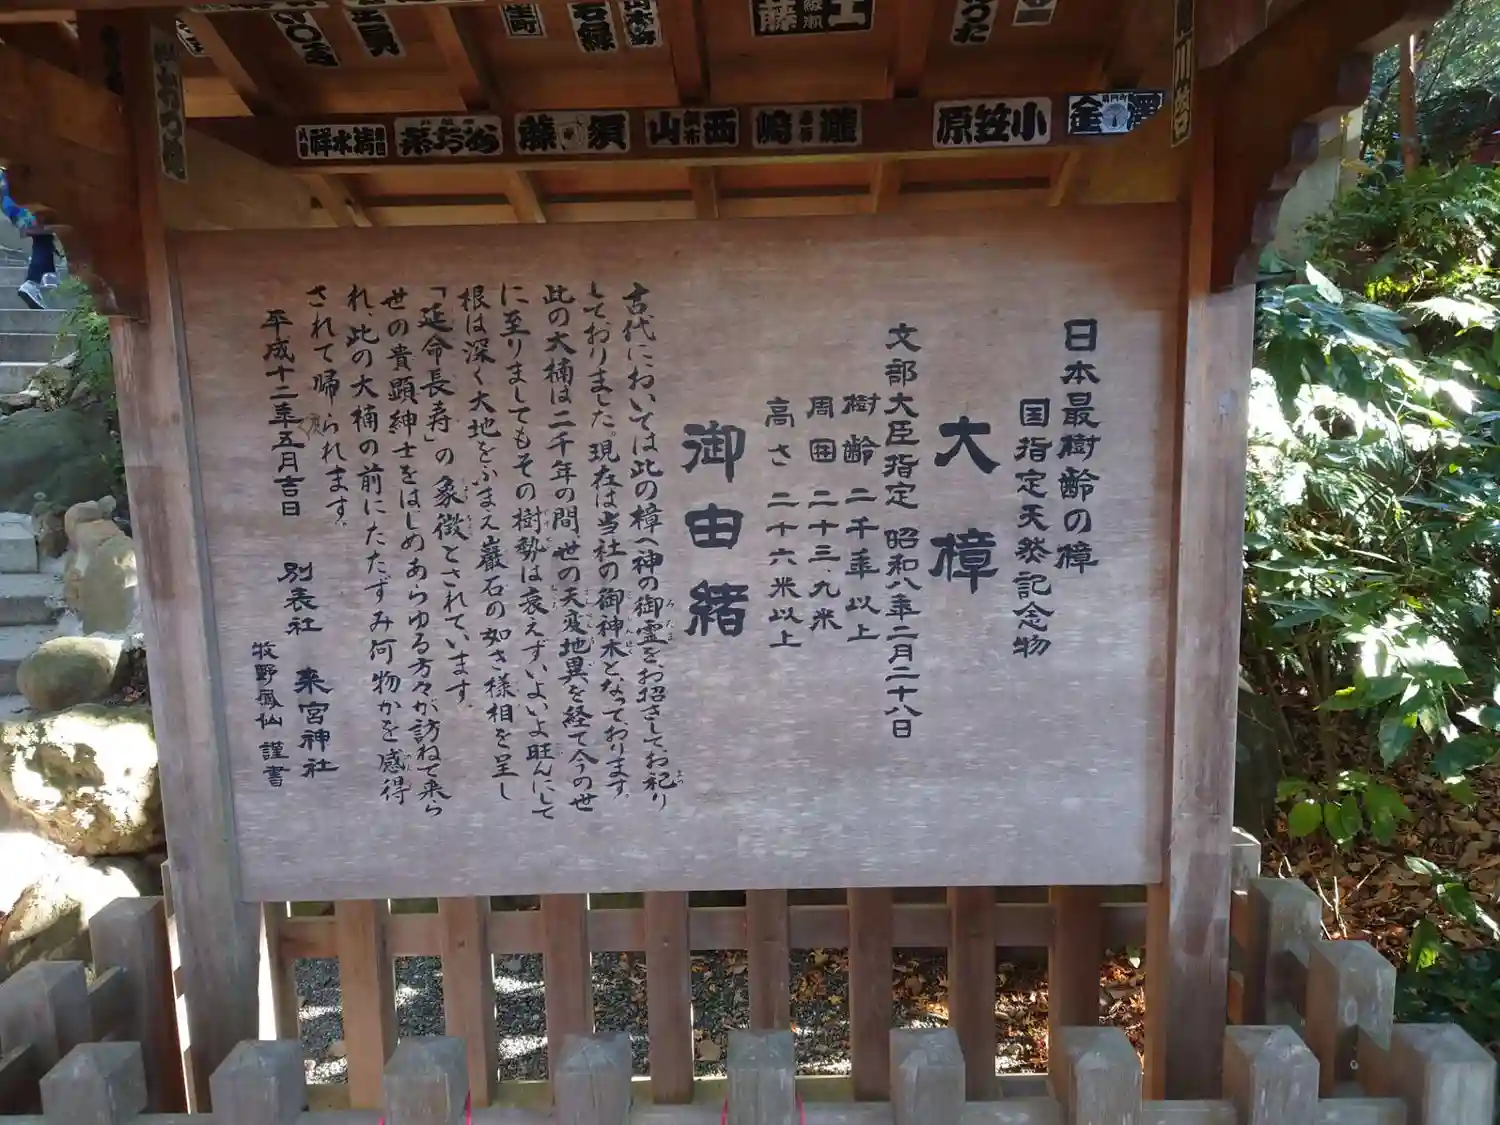 日本最樹齢の樟
国指定天然記念物
大樟
文部大臣指定 昭和八年二月二十八日
樹齢 二千年以上
周囲 二十三、九米
高さ 二十六米以上
御由緒
古代においては此の樟へ神の御霊を、お招きして、お祀り
しておりました。現在は当社の御神木となっております。
此の大楠は二千年の間、世の天変地異を経て今の世
に至りましてもその樹勢は衰えず、いよいよ旺んにして
根は深く大地をふまえ巌石の如き様相を呈し
「延命長寿」の象徴とされています。
世の貴顕紳士をはじめあらゆる方々が訪ねて来ら
れ、此の大楠の前にたたずみ何物かを感得
されて帰られます。
平成十二年五月吉日
別表社 来宮神社
牧野鳳仙 謹書
小笠原
瀧嶋
西山
須藤
清水祥